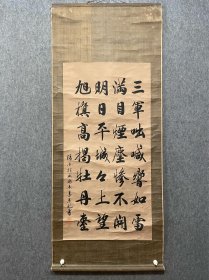 三軍吶喊響如雷
滿目煙塵慘不開
明日平城々上望
旭旗高揭牡丹臺